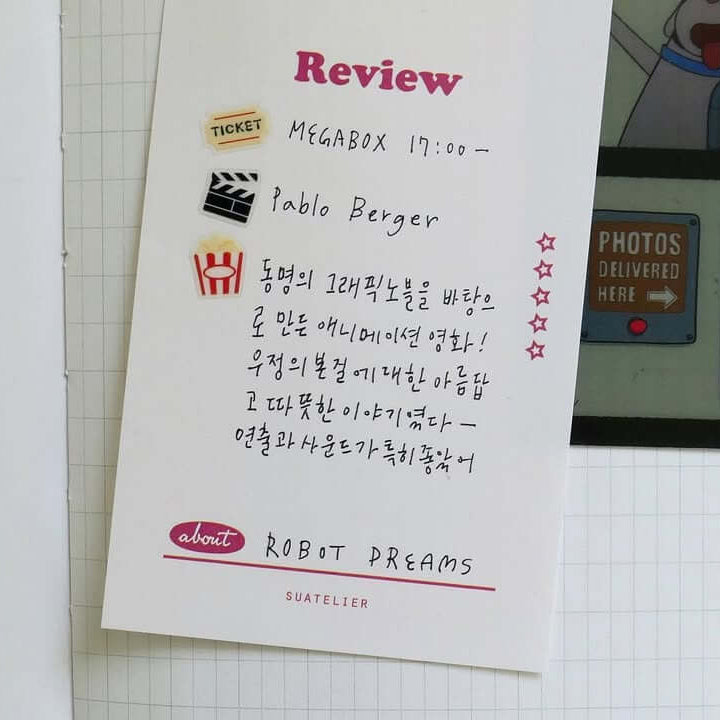 Review
TICKET
MEGABOX 17:00 —
Pablo Berger
동명의 그래픽노블을 바탕으
로 만든 애니메이션 영화!
우정의 본질에 대한 아름답
고 따뜻한 이야기였다 —
연출과 사운드가 특히 좋았어
about
ROBOT DREAMS
SUATELIER
PHOTOS
DELIVERED
HERE